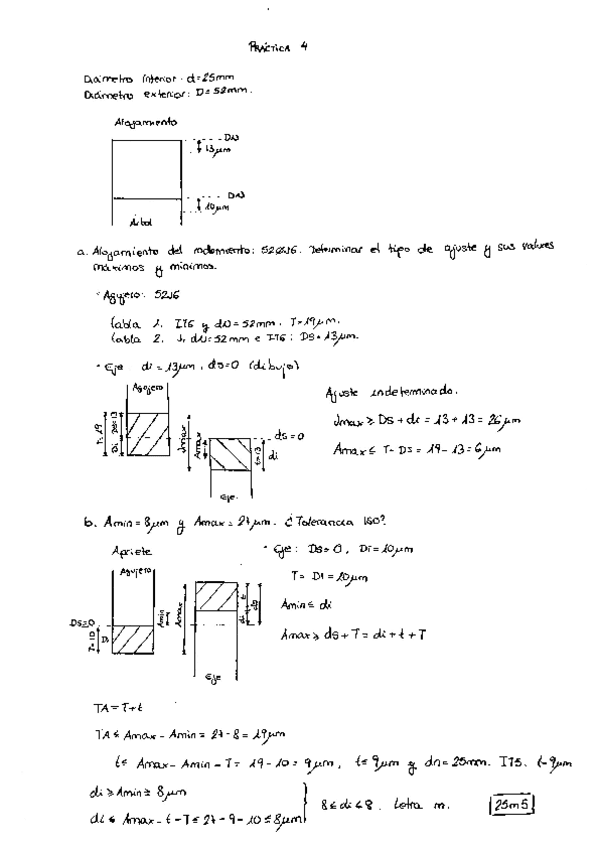 PRÁCTICA 4
Diámetro interior: d=25mm
Diámetro exterior: D=52mm.
Alojamiento
DN
13μm
DN
10μm
Árbol
a. Alojamiento del rodamiento: 52J6. Determinar el tipo de ajuste y sus valores
máximos y mínimos.
· Agujero: 52J6
Tabla 1. IT6 y dN=52mm. T=19μm.
Tabla 2. J, dN=52mm e IT6: DS=13μm.
· Eje di=13μm, ds=0 (dibujo)
Agujero
T=19
Di
DS=13
Jmax
Amax
ds=0
t=13
di
Eje
Ajuste indeterminado.
Jmax ≥ Ds + di = 13 + 13 = 26μm
Amax ≤ T - Ds = 19 - 13 = 6μm
b. Amin = 8μm y Amax = 27μm. ¿Tolerancia ISO?
Apriete
· Eje: Ds=0, Di=10μm
Agujero
T = Di = 10μm
Amin ≤ di
Amax ≥ ds + T = di + t + T
DS=0
T=10
Di
Amin
Amax
di
t
ds
Eje
TA = T+t
TA ≤ Amax - Amin = 27 - 8 = 19μm
t ≤ Amax - Amin - T = 19 - 10 = 9μm, t≤9μm y dn=25mm. IT5. t=9μm
di ≥ Amin ≥ 8μm
di ≤ Amax - t - T ≤ 27 - 9 - 10 ≤ 8μm
8 ≤ di ≤ 8. Letra m.
25m5